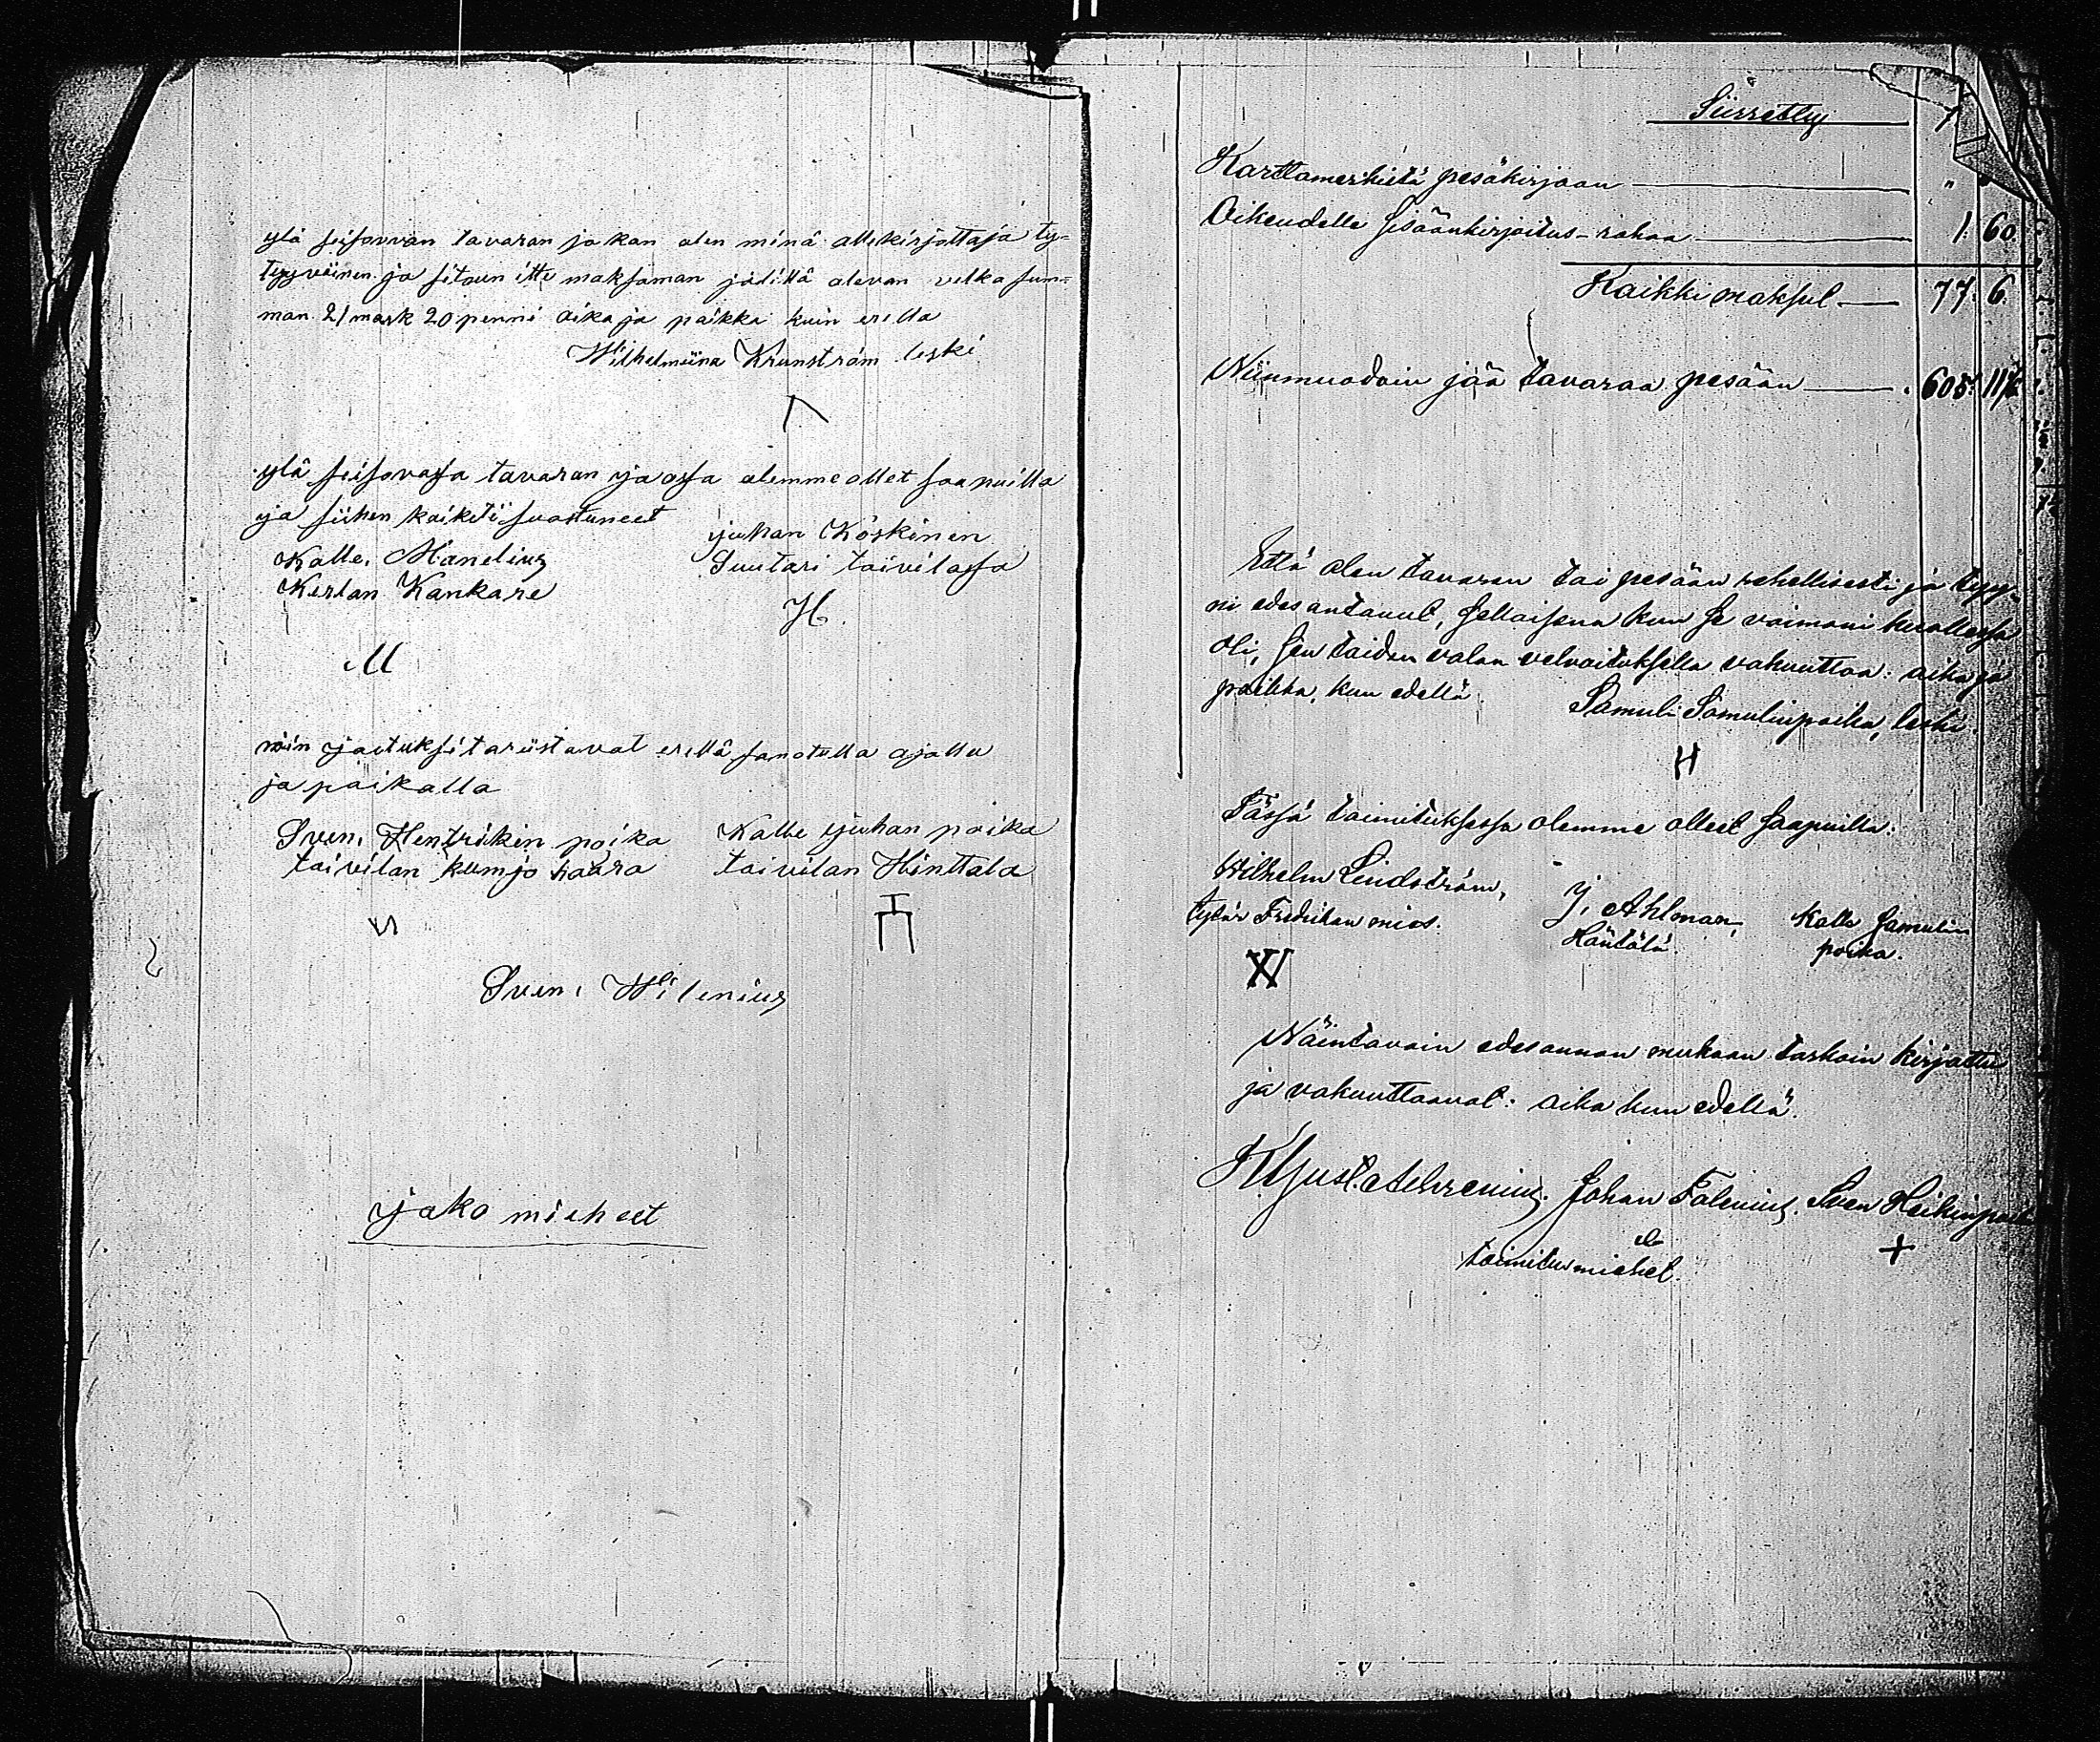 ylä seisovan tavaran jakan olen minä allekirjottaja ty-
tyyväinen ja sitoun itte maksaman jädillä olevan velka sum-
man 21 mark 20 penni aika ja paikka kuin erellä
Wilhelmiina Krunström leski
ylä seisovassa tavaran jaossa olemme ollet saapuilla
ja siihen kaiketi suostuneet
juhan Köskinen
Kalle Manelius
Suutari taivilassa
Kertan Kankare
H
M
näin jaetuksi tariistavat erellä sanotulla ajalla
ja paikalla
Sven Hentrikin poika
Kalle juhan poika
taivilan kumjo haara
taivilan Hinttala
Sven Wilenius
jako miehet
Siirretty
Karttamerkistä pesäkirjaan — "
Oikeudelle sisäänkirjoitus-rahaa — 1. 60
Kaikki maksut — 77. 6.
Niinmuodoin jää tavaraa pesään — 605
Että olen tavaran tai pesään rehellisesti ja tyy-
ni edesantanut, sellaisena kun se vaimoni kuollessa
oli, sen taidan valan velvoituksella vahvuttaa: aika ja
paikka, kun edellä.
Samuli Samulinpoika, leski.
H
Tässä toimituksessa olemme olleet saapuilla:
Wilhelm Lindström,
J. Ahlman,
Kalle Samulin
tytär Fredrikan mies.
Häntälä.
poika.
Näintavoin edesannon mukaan tarkoin kirjattu
ja vakuuttaavat: aika kun edellä.
Johan Falenius. Sven Heikinpoika
toimitusmiehet.